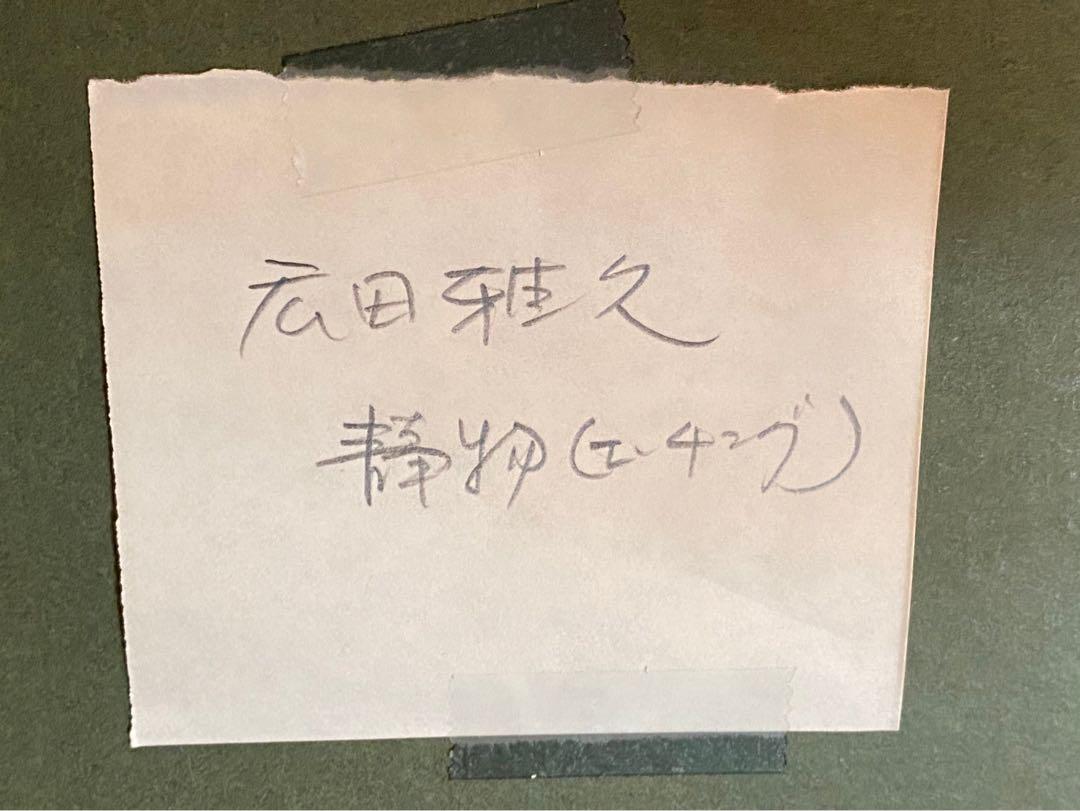 広田雅久
静物(エッチング)